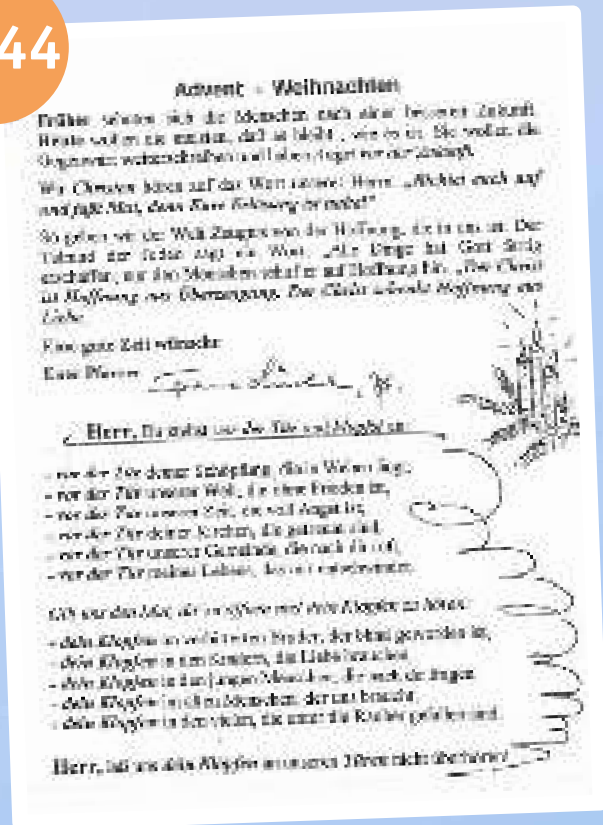 44
Advent - Weihnachten
Früher sehnten sich die Menschen nach einer besseren Zukunft.
Heute wollen die meisten, daß es bleibt, wie es ist. Sie wollen die
Gegenwart weiterschreiben und haben Angst vor der Zukunft.
Wir Christen hören auf das Wort unseres Herrn: „Richtet euch auf
und faßt Mut, denn Eure Erlösung ist nahe!"
So geben wir der Welt Zeugnis von der Hoffnung, die in uns ist. Der
Talmud der Juden sagt ein Wort: „Alle Dinge hat Gott fertig
erschaffen, nur den Menschen schuf er auf Hoffnung hin. „Der Christ
ist Hoffnung aus Überzeugung. Der Christ Hoffnung aus
Liebe.
Eine gute Zeit wünscht
Euer Pfarrer
Herr, Du stehst vor der Tür und klopfst an:
- vor der Tür deiner Schöpfung, die in Wehen liegt,
- vor der Tür unserer Welt, die ohne Frieden ist,
- vor der Tür unserer Zeit, die voll Angst ist,
- vor der Tür deiner Kirchen, die getrennt sind,
- vor der Tür unserer Gemeinde, die nach dir ruft,
- vor der Tür meines Lebens, das
Gib uns den Mut, dir zu öffnen und dein Klopfen zu hören:
- dein Klopfen im Bruder, der blind geworden ist,
- dein Klopfen in den Kindern, die Liebe brauchen
- dein Klopfen in den jungen Menschen, die nach dir fragen
- dein Klopfen im alten Menschen, der uns braucht
- dein Klopfen in den vielen, die unter die Räuber gefallen sind.
Herr, laß uns dein Klopfen an unseren Türen nicht überhören!